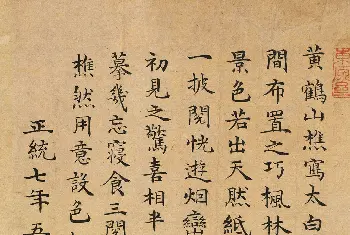 黃鶴山樵寫太白
間布置之巧楓林
景色若出天然紙
一披閱恍遊烟巒
初見之驚喜相半
摹幾忘寢食三閱
樵然用意設色
正統七年五